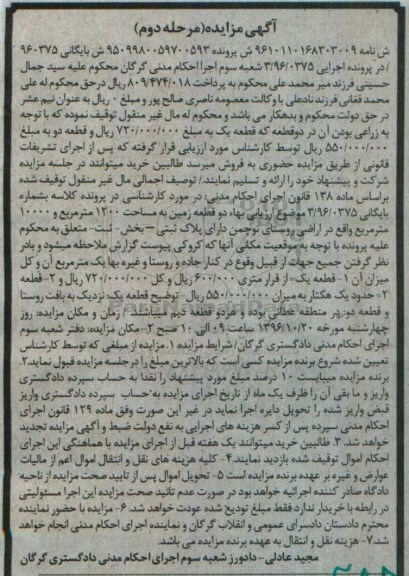 آگهی مزایده(مرحله دوم)
ش نامه ۹۶۱۰۱۱۰۱۶۸۳۰۳۰۰۹ ش پرونده ۹۵۰۹۹۸۰۰۵۹۷۰۰۵۹۳ ش بایگانی ۹۶۰۳۷۵
/ در پرونده اجرایی ۳/۹۶/۰۳۷۵ شعبه سوم اجرا احکام مدنی گرگان محکوم علیه سید جمال
حسینی فرزند میر محمد علی محکوم به پرداخت ۸۰۹/۴۷۴/۰۱۸ ریال درحق محکوم له علی
محمد فغانی فرزند نادعلی با وکالت معصومه ناصری صالح پور و مبلغ ۰ ریال به عنوان نیم عشر
در حق دولت محکوم و بدهکار می باشد و محکوم له مال غیر منقول توقیف نموده که با توجه
به زراعی بودن آن در دوقطعه که قطعه یک به مبلغ ۷۲۰/۰۰۰/۰۰۰ ریال و قطعه دو به مبلغ
۵۵۰/۰۰۰/۰۰۰ ریال توسط کارشناس مورد ارزیابی قرار گرفته که پس از اجرای تشریفات
قانونی از طریق مزایده حضوری به فروش میرسد طالبین خرید میتوانند در جلسه مزایده
شرکت و پیشنهاد خود را ارائه و تسلیم نمایند./ توصیف اجمالی مال غیر منقول توقیف شده
براساس ماده ۱۳۸ قانون اجرای احکام مدنی: در مورد کارشناسی در پرونده کلاسه بشماره
بایگانی ۳/۹۶/۰۳۷۵ موضوع ارزیابی بهاء دو قطعه زمین به مساحت ۱۲۰۰ مترمربع و ۱۰۰۰۰
مترمربع واقع در اراضی روستای توجمن دارای پلاک ثبتی –بخش- ثبت- متعلق به محکوم
علیه پرونده با توجه به موقعیت مکانی آنها که کروکی پیوست گزارش ملاحظه میشود و بادر
نظر گرفتن جمیع جهات از قبیل وقوع در کنار جاده و روستا و غیره بها یک مترمربع آن و کل
میزان آن ۱- قطعه یک» از قرار متری ۶۰۰/۰۰۰ ریال و کل ۷۲۰/۰۰۰/۰۰۰ ریال و ۲- قطعه
۲» حدود یک هکتار به میزان ۵۵۰/۰۰۰/۰۰۰ ریال- توضیح قطعه یک: نزدیک به بافت روستا
و قطعه دو: منطقه عطائی بوده و هردو قطعه دیم میباشند./ زمان و مکان مزایده: روز
چهارشنبه مورخه ۱۳۹۶/۱۰/۲۰ ساعت ۰۹ الی ۱۰ صبح ۲- مکان مزایده: دفتر شعبه سوم
اجرای احکام مدنی دادگستری گرگان/ شرایط مزایده ۱. مزایده از مبلغی که توسط کارشناس
تعیین شده شروع برنده مزایده کسی است که بالاترین مبلغ را در جلسه مزایده قبول نماید.۲.
برنده مزایده میبایست ۱۰ درصد مبلغ مورد پیشنهاد را نقدا به حساب سپرده دادگستری
واریز و ما بقی آن را ظرف یک ماه از تاریخ اجرای مزایده به حساب سپرده دادگستری واریز
قبض واریز شده را تحویل دایره اجرا نماید در غیر این صورت وفق ماده ۱۲۹ قانون اجرای
احکام مدنی سپرده پس از کسر هزینه های اجرایی به نفع دولت ضبط و آگهی مزایده تجدید
خواهد شد. ۳. طالبین خرید میتوانند یک هفته قبل از اجرای مزایده با هماهنگی این اجرای
احکام اموال توقیف شده بازدید نمایند.۴- کلیه هزینه های نقل و انتقال اموال اعم از مالیات
عوارض و غیره بر عهده برنده مزایده است ۵- تحویل اموال پس از تایید صحت مزایده از ناحیه
دادگاه صادر کننده اجرائیه خواهد بود در صورت عدم تائید صحت مزایده این اجرا مسئولیتی
در رابطه با خریدار ندارد فقط مبلغ تودیع شده عودت خواهد شد. ۶- مزایده با حضور نماینده
محترم دادستان دادسرای عمومی و انقلاب گرگان و نماینده اجرای احکام مدنی انجام خواهد
شد.۷- هزینه نقل و انتقال به عهده برنده مزایده می باشد.
مجید عادلی- دادورز شعبه سوم اجرای احکام مدنی دادگستری گرگان